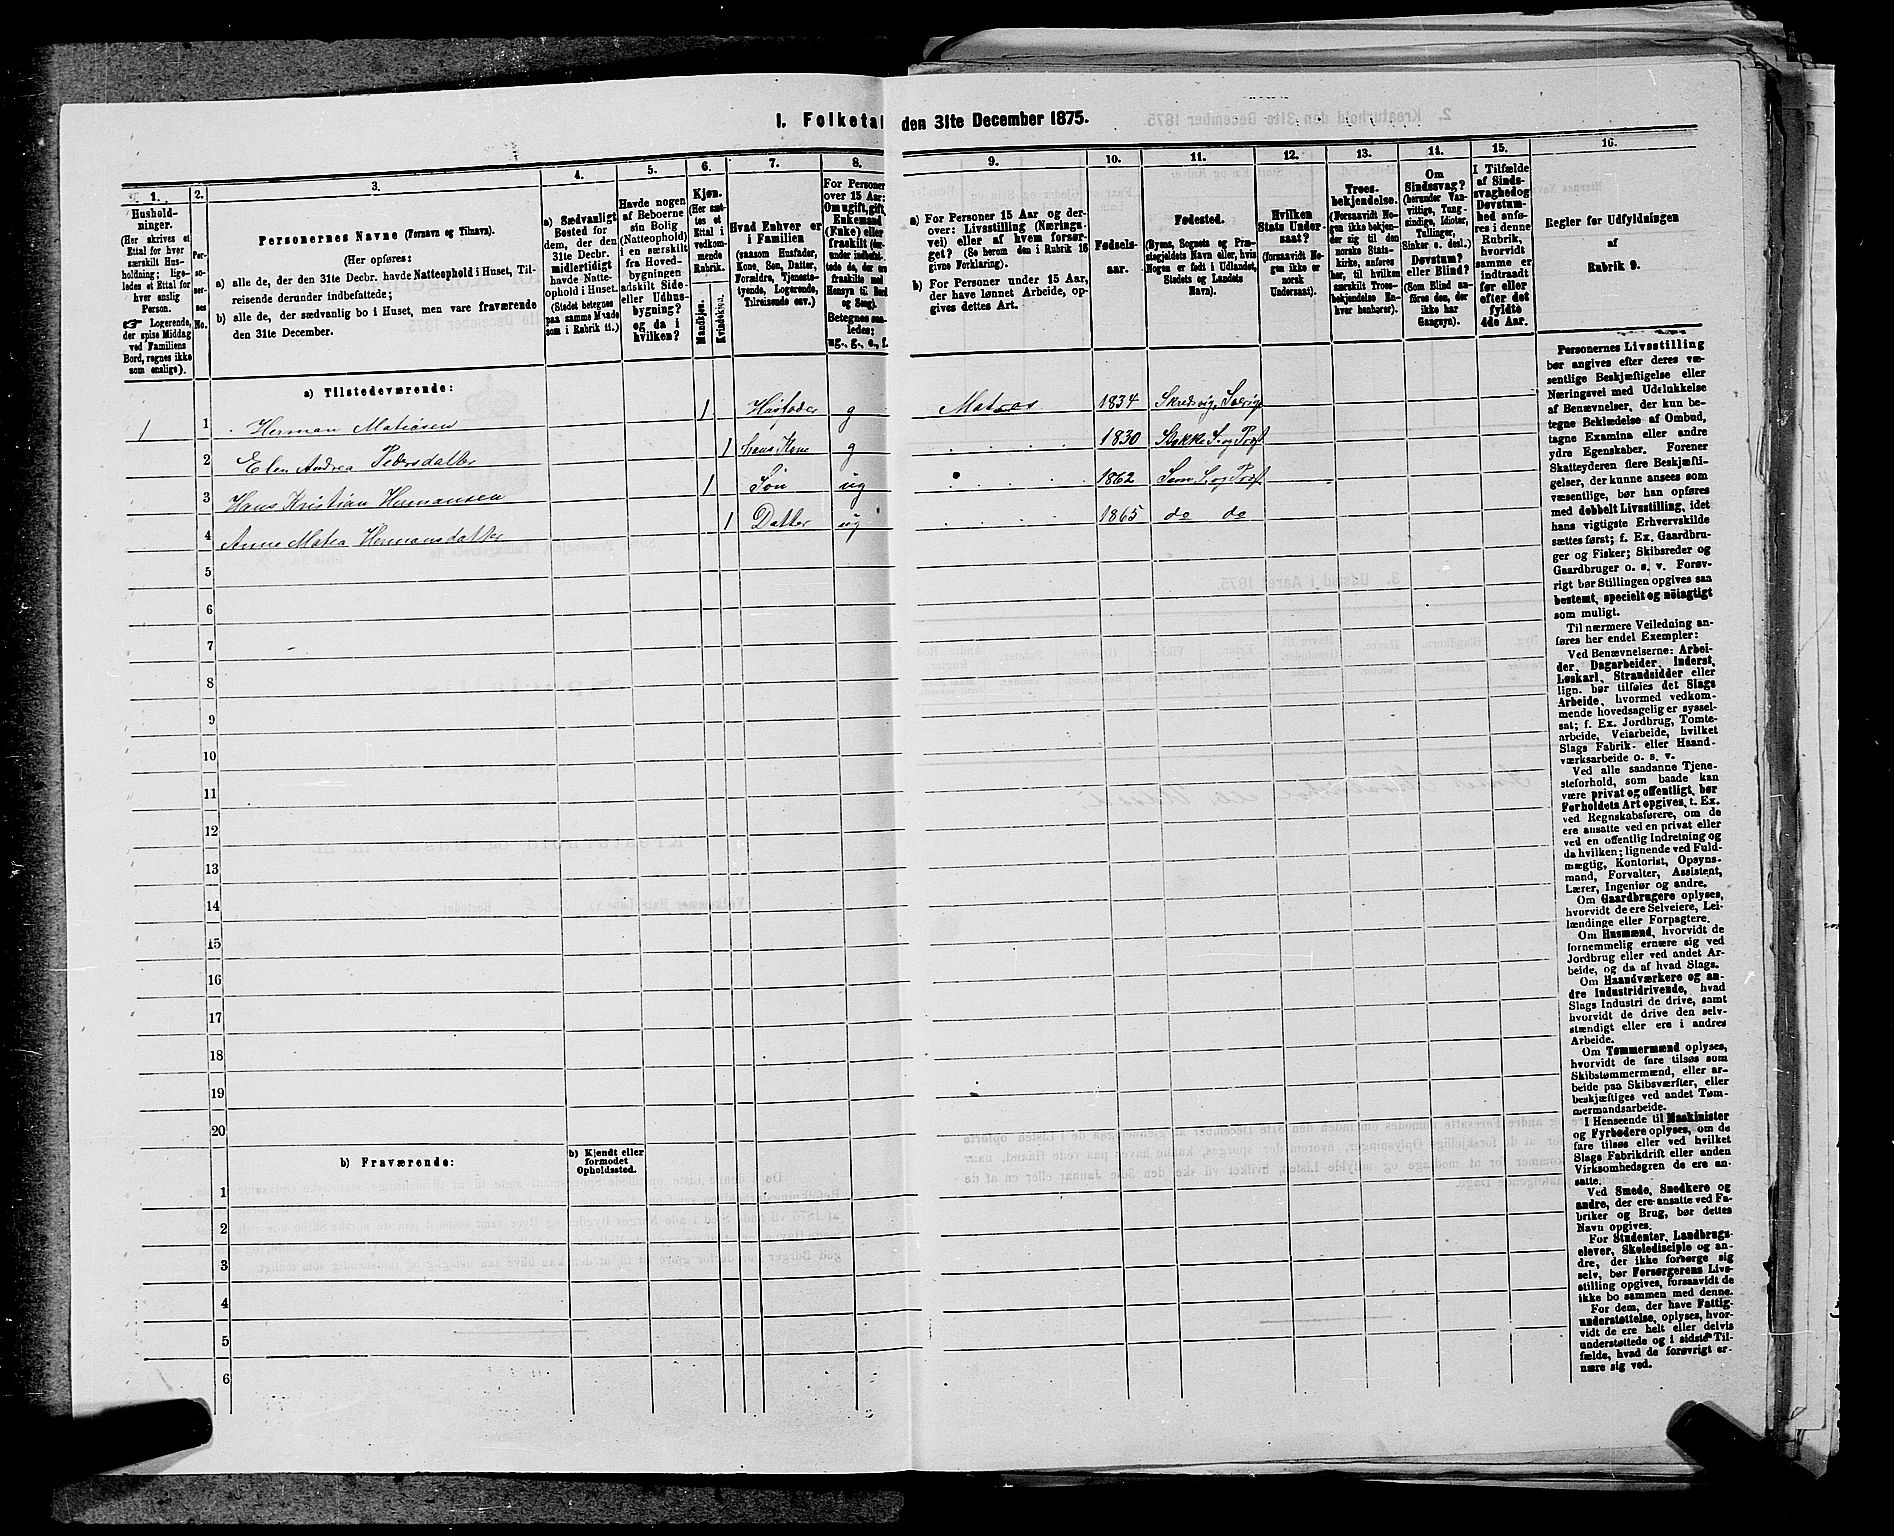 I. Folketal den 31te December 1875.
1.
2.
3.
4.
5.
6.
7.
8.
9.
10.
11.
12.
13.
14.
15.
16.
Hushold-
ninger.
(Her skrives et
Ettal for hver
særskilt Hus-
holdning; lige-
ledes et Ettal for
hver enslig
Person.
☞ Logerende,
der spise Middag
ved Familiens
Bord, regnes ikke
som enslige).
Per-
so-
ner-
nes
No.
Personernes Navne (Fornavn og Tilnavn).
(Her opføres:
a) alle de, der den 31te Decbr. havde Natteophold i Huset, Til-
reisende derunder indbefattede;
b) alle de, der sædvanlig bo i Huset, men vare fraværende
den 31te December.
a) Sædvanligt
Bosted for
dem, der den
31te Decbr.
midlertidigt
havde Natte-
ophold i Huset.
(Stedet betegnes
paa samme Maade
som i Rubrik 11.)
Havde nogen
af Beboerne
sin Bolig
(Natteophold)
i en særskilt
fra Hoved-
bygningen
adskilt Side-
eller Udhus-
bygning?
og da i
hvilken?
Kjøn.
(Her sæt-
tes et
Ettal i
vedkom-
mende
Rubrik.
Mandkjøn.
Kvindekjøn.
Hvad Enhver er
i Familien
(saasom Husfader,
Kone, Søn, Datter,
Forældre, Tjeneste-
tyende, Logerende,
Tilreisende osv.)
For Personer
over 15 Aar:
Om ugift, gift,
Enkemand
(Enke) eller
fraskilt
Betegnes saa-
ledes:
ug., g., e., f.
a) For Personer 15 Aar og der-
over: Livsstilling (Nærings-
vei) eller af hvem forsør-
get? (Se herom den i Rubrik 16
givne Forklaring).
b) For Personer under 15 Aar,
der have lønnet Arbeide, op-
gives dettes Art.
Fødsels-
aar.
Fødested.
(Byens, Sognets og Præ-
stegjeldets Navn eller, hvis
Nogen er født i Udlandet,
Stedets og Landets
Navn).
Hvilken
Stats Under-
saat?
(forsaavidt No-
gen ikke er
norsk
Undersaat).
Troes-
bekjendelse.
(Forsaavidt No-
gen ikke bekjen-
der sig til den
norske Stats-
kirke, anføres
her, til hvilken
særskilt Troes-
bekjendelse En-
hver henhører).
Om
Sindssvag?
(herunder Van-
vittige, Tung-
sindige, Idioter,
Tullinger,
Sinker o. desl.)
Døvstum?
eller Blind?
(Som Blind an-
føres den, der
ikke har
Gangsyn).
I Tilfælde
af Sinds-
svaghed og
Døvstum-
hed anfø-
res i denne
Rubrik,
hvorvidt
samme er
indtraadt
før eller
efter det
fyldte
4de Aar.
Regler for Udfyldningen
af
Rubrik 9.
a) Tilstedeværende:
1 1 Herman Matiasen 1 Husfader g Matros 1834 Skredsvig, Sverige
2 Elen Andrea Pedersdatter 1 hans Kone g 1830 Stokke S. og Prst
3 Hans Kristian Hermansen 1 Søn ug 1862 Sem S. og Prst
4 Anne Matea Hermansdatter 1 Datter ug 1865 do do
5
6
7
8
9
10
11
12
13
14
15
16
17
18
19
20
b) Fraværende:
b) Kjendt eller
formodet
Opholdssted.
1
2
3
4
5
6
Personernes Livsstilling
bør angives efter deres væ-
sentlige Beskjæftigelse eller
Næringsvei med Udelukkelse
af Benævnelser, der kun be-
tegne Beklædelse af Ombud,
tagne Examina eller andre
ydre Egenskaber. Forener
Skatteyderen flere Beskjæfti-
gelser, der kunne ansees som
væsentlige, bør han opføres
med dobbelt Livsstilling, idet
hans vigtigste Erhvervskilde
sættes først; f. Ex. Gaardbru-
ger og Fisker; Skibsreder og
Gaardbruger o. s. v. Forøv-
rigt bør Stillingen opgives saa
bestemt, specielt og nöiagtigt
som muligt.
Til nærmere Veiledning an-
føres her endel Exempler:
Ved Benævnelserne: Arbei-
der, Dagarbeider, Inderst,
Løskarl, Strandsidder eller
lign. bør tilføies det Slags
Arbeide, hvormed vedkom-
mende hovedsagelig er syssel-
sat; f. Ex. Jordbrug, Tomte-
arbeide, Veiarbeide, hvilket
Slags Fabrik- eller Haand-
værksarbeide o. s. v.
Ved alle saadanne Tjene-
steforhold, som baade kan
være privat og offentligt, bør
Forholdets Art opgives, t. Ex.
ved Regnskabsførere, om de
ere ansatte ved en privat eller
ved en offentlig Indretning og
da hvilken; lignende ved Fuld-
mægtig, Kontorist, Opsyns-
mand, Forvalter, Assistent,
Lærer, Ingeniør og andre.
Om Gaardbrugere oplyses,
hvorvidt de ere Selveiere, Lei-
lændinge eller Forpagtere.
Om Husmænd, hvorvidt de
fornemmelig ernære sig ved
Jordbrug eller ved andet Ar-
beide, og da af hvad Slags.
Om Haandværkere og an-
dre Industridrivende, hvad
Slags Industri de drive, samt
hvorvidt de drive den selv-
stændigt eller ere i andres
Arbeide.
Om Tømmermænd oplyses,
hvorvidt de fare tilsøs som
Skibstømmermænd, eller ar-
beide paa Skibsværfter, eller
beskjæftiges ved andet Tøm-
mermandsarbeide.
I Henseende til Maskinister
og Fyrbødere oplyses, om de
fare tilsøs eller ved hvilket
Slags Fabrikdrift eller anden
Virksomhedsgren de ere an-
satte.
Ved Smede, Snedkere og
andre, der ere ansatte ved Fa-
briker og Brug, bør dettes
Navn opgives.
For Studenter, Landbrugs-
elever, Skoledisciple og an-
dre, der ikke forsørge sig
selv, bør Forsørgerens Livs-
stilling opgives, forsaavidt de
ikke bo sammen med denne.
For dem, der have Fattig-
understøttelse, oplyses, hvor-
vidt de ere helt eller delvis
understøttede og i sidste Til-
fælde, hvad de forøvrigt er-
nære sig ved.